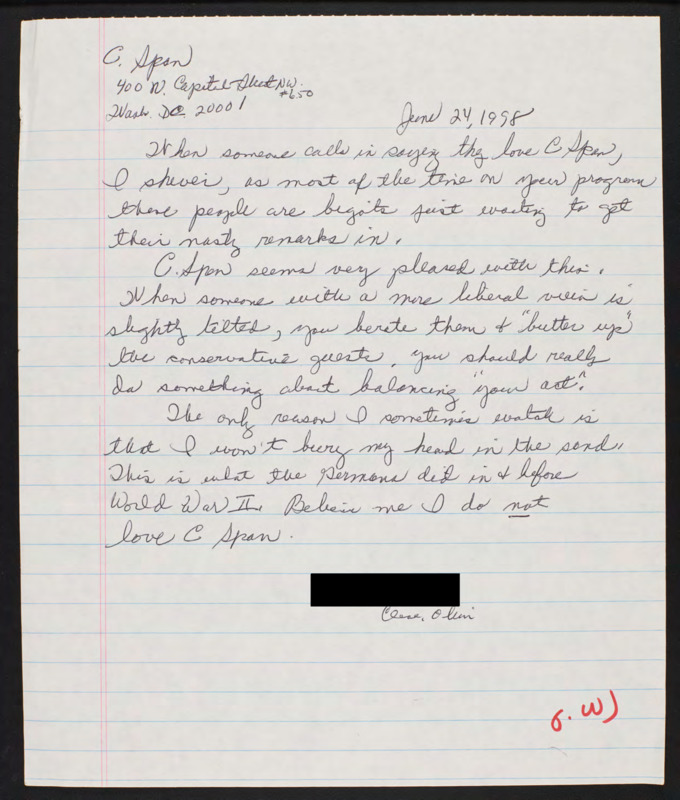 C. Span
400 N. Capitol Street NW.
#650
Wash. DC. 20001
June 24, 1998
When someone calls in saying they love C Span,
I shiver, as most of the time on your program
these people are bigots just waiting to get
their nasty remarks in.
C. Span seems very pleased with this.
When someone with a more liberal view is
slightly tilted, you berate them & "butter up"
the conservative guests. You should really
do something about balancing "your act".
The only reason I sometimes watch is
that I won't bury my head in the sand.
This is what the Germans did in & before
World War II. Believe me I do not
love C Span.
Cleve, Ohio